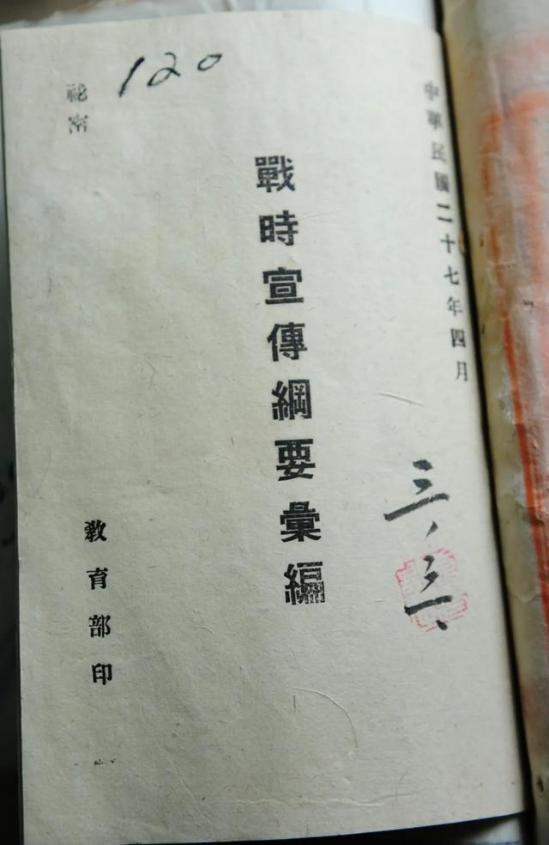 中華民國二十七年四月
三、三、
戰時宣傳綱要彙編
120
秘密
教育部印